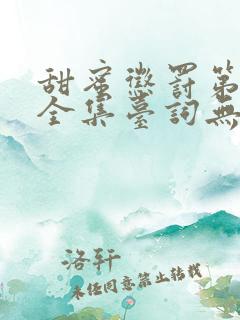 甜蜜懲罰第
全集臺詞無
洛轩
未经同意禁止转载